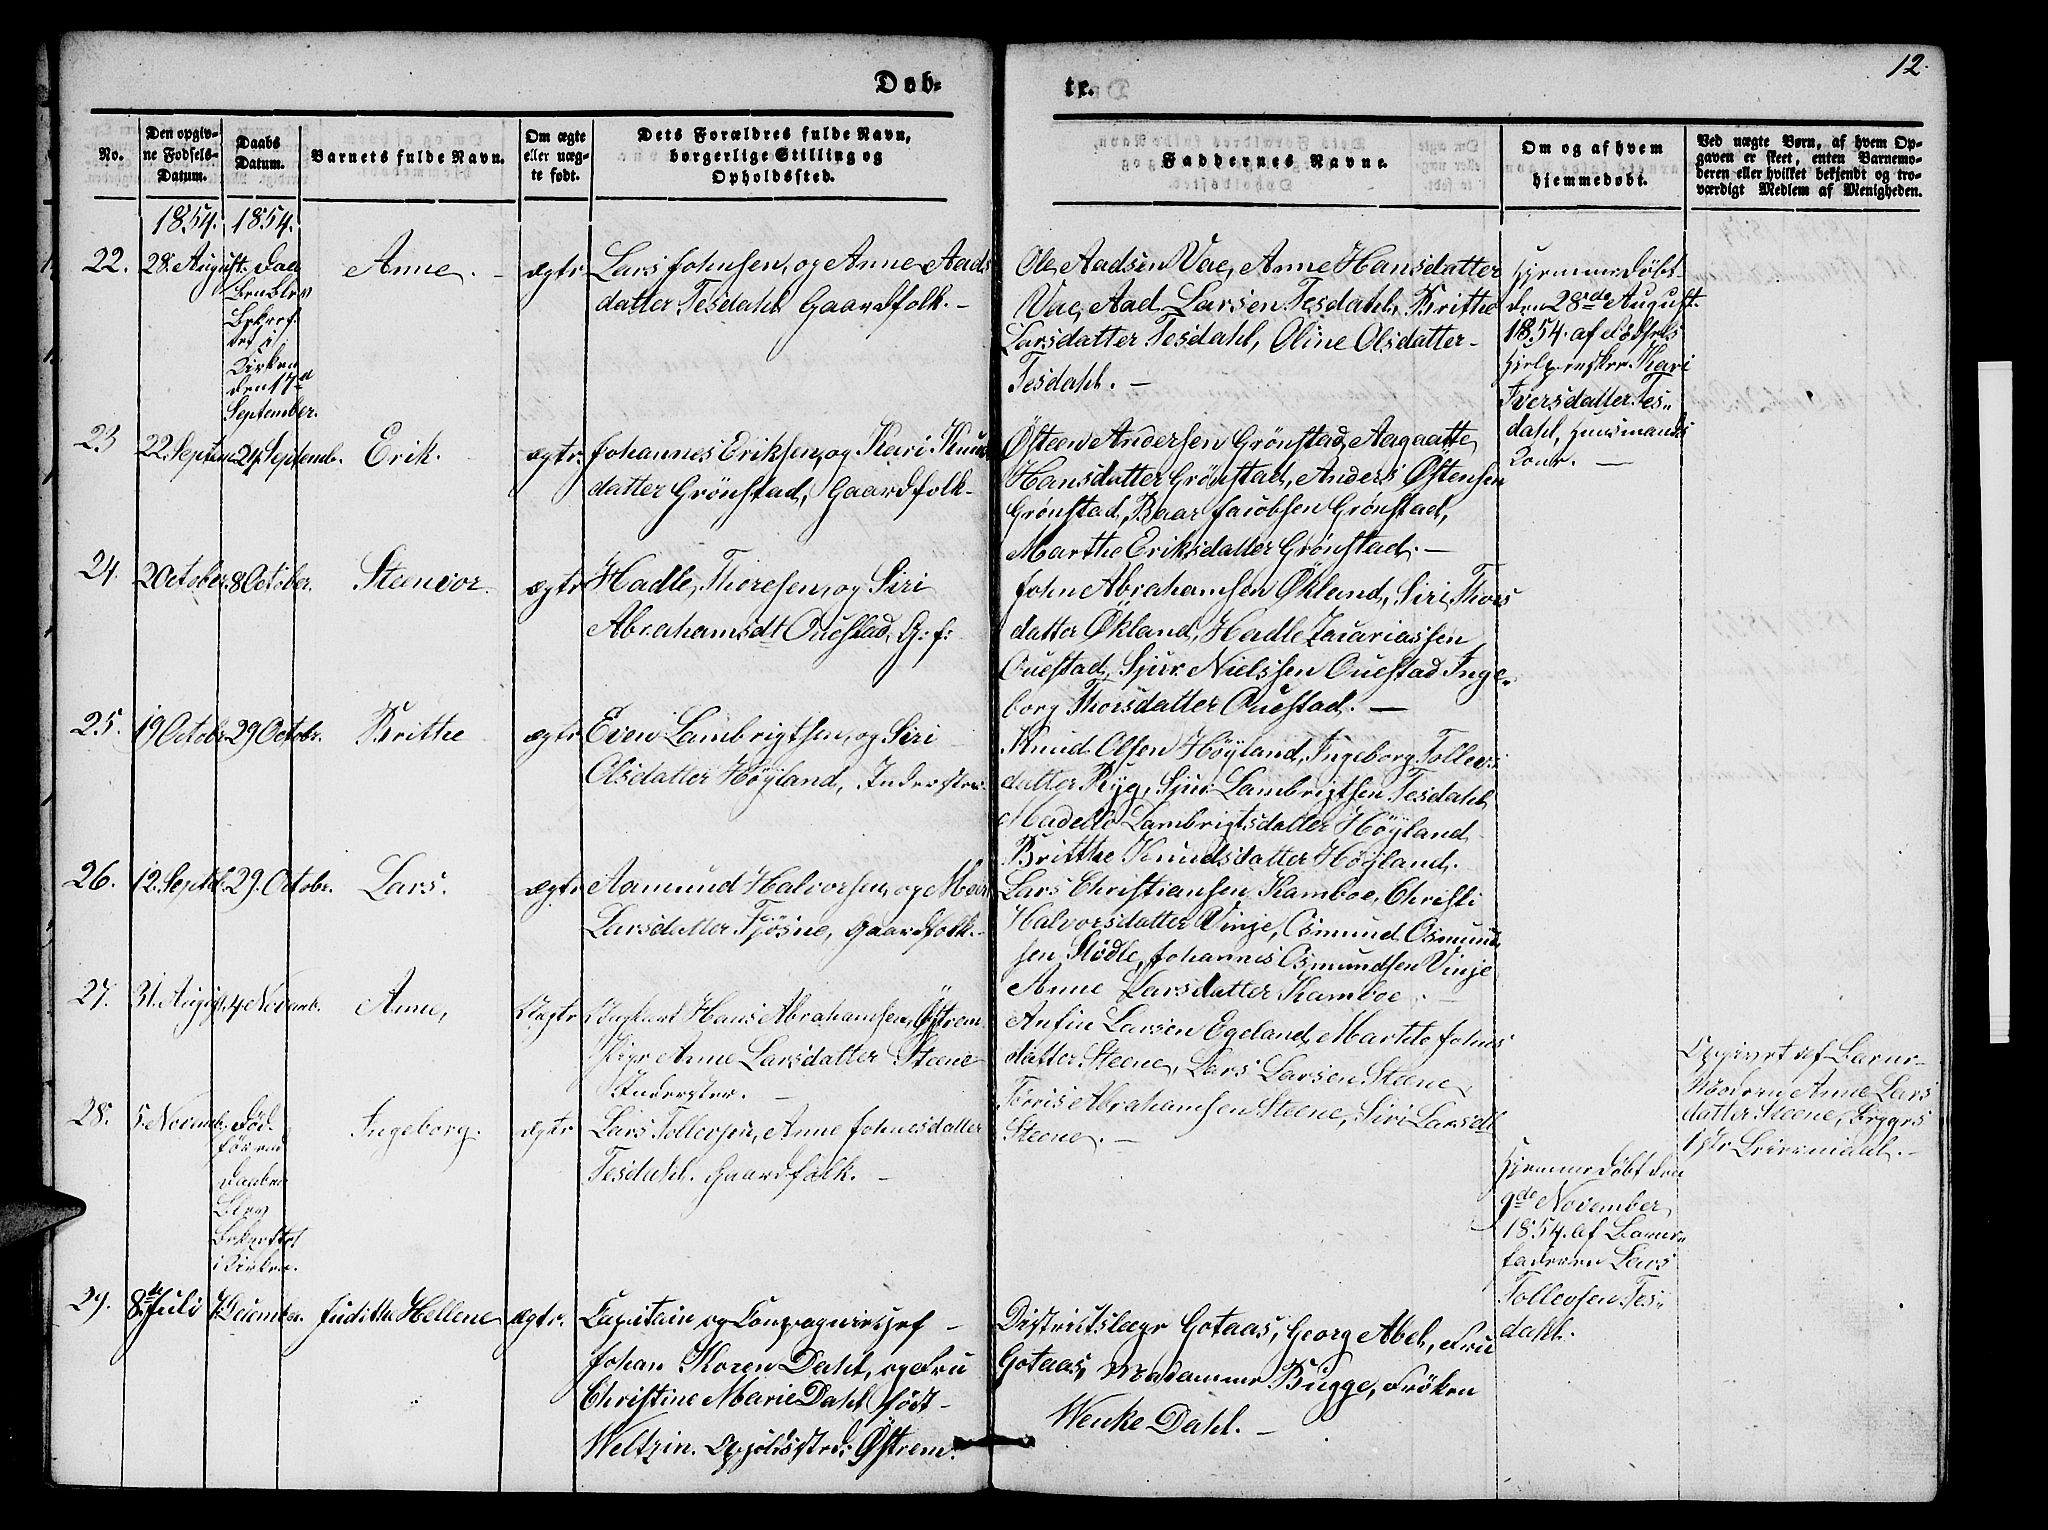 12.
Døb-
te.
No.
Den opgiv-
ne Fødsels-
Datum.
Daabs
Datum.
Barnets fulde Navn.
Om ægte
eller uæg-
te født.
Dets Forældres fulde Navn,
borgerlige Stilling og
Opholdssted.
Faddernes Navne.
Om og af hvem
hjemmedøbt.
Ved uægte Børn, af hvem Op-
gaven er skeet, enten Barnemo-
deren eller hvilket bekjendt og tro-
værdigt Medlem af Menigheden.
1854. 1854.
22.
28. August.
Daa
ben blev
Bekræf-
tet i
Kirken
den 17d
September.
Anne. -
ægte
Lars Johnsen, og Anne Aads
datter Tesdahl Gaardfolk. -
Ole Aadsen Vae, Anne Hansdatter
Vae, Aad Larsen Tesdahl, Britthe
Larsdatter Tesdahl, Oline Olsdatter
Tesdahl. -
Hjemmedøbt
den 28de August
1854. af Fødsels
hjelpersken Kari
Iversdatter Tes-
dahl, Huusmands
Kone. -
23
22. Septem
24 Septemb.
Erik.
ægte.
Johannes Eriksen, og Kari Knuds
datter Grönstad, Gaardfolk.
Östen Andersen Grönstad, Aagaatte
Hansdatter Grönstad, Anders Östensen
Grönstad, Baar Jacobsen Grönstad,
Marthe Eriksdatter Grönstad. -
24.
2 October.
8 October.
Stenvor.
ægte
Hadle, Thoresen, og Siri
Abrahamsdt Ouestad, G: f:
John Abrahamsen Økland, Siri Thors
datter Økland, Hadle Zacariassen
Ouestad, Sjur Nielssen Ouestad Inge-
borg Thorsdatter Ouestad. -
25.
19 Octobr.
29 Octobr.
Britthe
ægte
Even Lambrigtsen, og Siri
Olsdatter Höyland, Inderster.
Knud Olsen Höyland, Ingeborg Tollevs
datter Ryg, Sjur Lambrigtsen Tesdahl
Madelle Lambrigtsdatter Höyland
Britthe Knudsdatter Höyland.
26.
12. Septb.
29. Octobr.
Lars.
ægte
Aamund Halvorsen, og Mari
Larsdatter Fjösne, Gaardfolk. -
Lars Christiansen Kamboe, Christi
Halvorsdatter Vinje, Osmund Osmund
sen Stödle, Johannis Osmundsen Vinje
Anne Larsdatter Kamboe. -
27.
31. August.
4 Novemb.
Anne,
Uægte
Ungkarl Hans Abrahamsen, Østrem
Pige Anne Larsdatter Steene
Inderster. -
Anfin Larsen Egeland, Marthe Johns
datter Steene, Lars Larsen Steene,
Törris Abrahamsen Steene, Siri Larsdt
Steene. -
Opgivet af Barne-
Moderen Anne Lars
datter Steene,
28.
5. Novemb.
Död
förend
Daaben
blev
bekræftet
i Kirken.
Ingeborg.
ægte
Lars Tollevsen, Anne Johnesdatter
Tesdahl. Gaardfolk. -
Hjemmedöbt den
9de November
1854. af Barne-
faderen Lars
Tollevsen Tes-
dahl.
29.
8de Juli
December.
Judithe Hellene
ægte.
Capitain og Compagniesjef -
Johan Koren Dahl, og Fru
Christine Marie Dahl, født -
Weltzin. Opholdssted: Østrem.
Districtslæge Gotaas, Georg Abel, Fru
Gotaas, Madamme Bugge, Frøken
Wenke Dahl. -